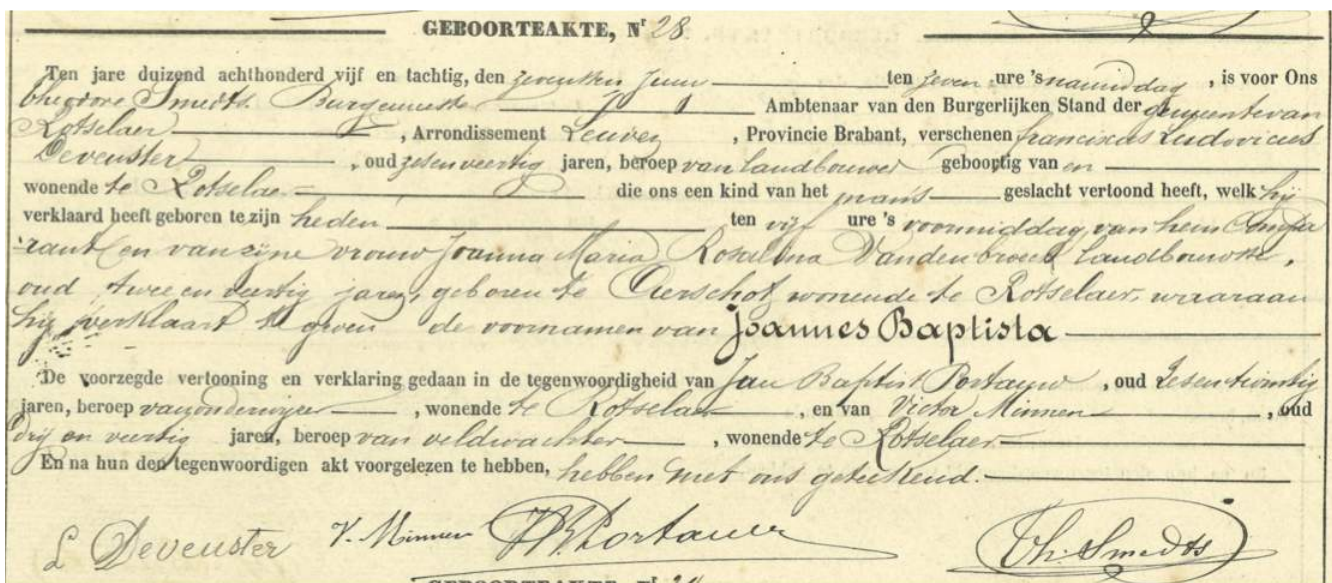 GEBOORTEAKTE, Nr 28
Ten jare duizend achthonderd vijf en tachtig, den zeventien Juni ten zeven ure 's namiddag, is voor Ons
Theodore Smedts Burgemeester Ambtenaar van den Burgerlijken Stand der gemeente van
Rotselaer, Arrondissement Leuven, Provincie Brabant, verschenen franciscus Ludovicus
Devenster, oud zesenveertig jaren, beroep van landbouwer geboortig van en
wonende te Rotselaer die ons een kind van het mans geslacht vertoond heeft, welk hij
verklaard heeft geboren te zijn heden ten vijf ure 's voormiddag van hem Compa
rant en van zijne vrouw Joanna Maria Rosalina Vandenbroeck landbouwster,
oud twee en veertig jaren, geboren te Aerschot, wonende te Rotselaer, waaraan
hij verklaart te geven de voornamen van Joannes Baptista
De voorzegde vertooning en verklaring gedaan in de tegenwoordigheid van Jan Baptist Portauw, oud zesentwintig
jaren, beroep van onderwijzer, wonende te Rotselaer, en van Victor Minnen, oud
drij en veertig jaren, beroep van veldwachter, wonende te Rotselaer
En na hun den tegenwoordigen akt voorgelezen te hebben, hebben met ons geteekend.
L Devenster V. Minnen JB Portauw Th. Smedts
GEBOORTEAKTE, Nr